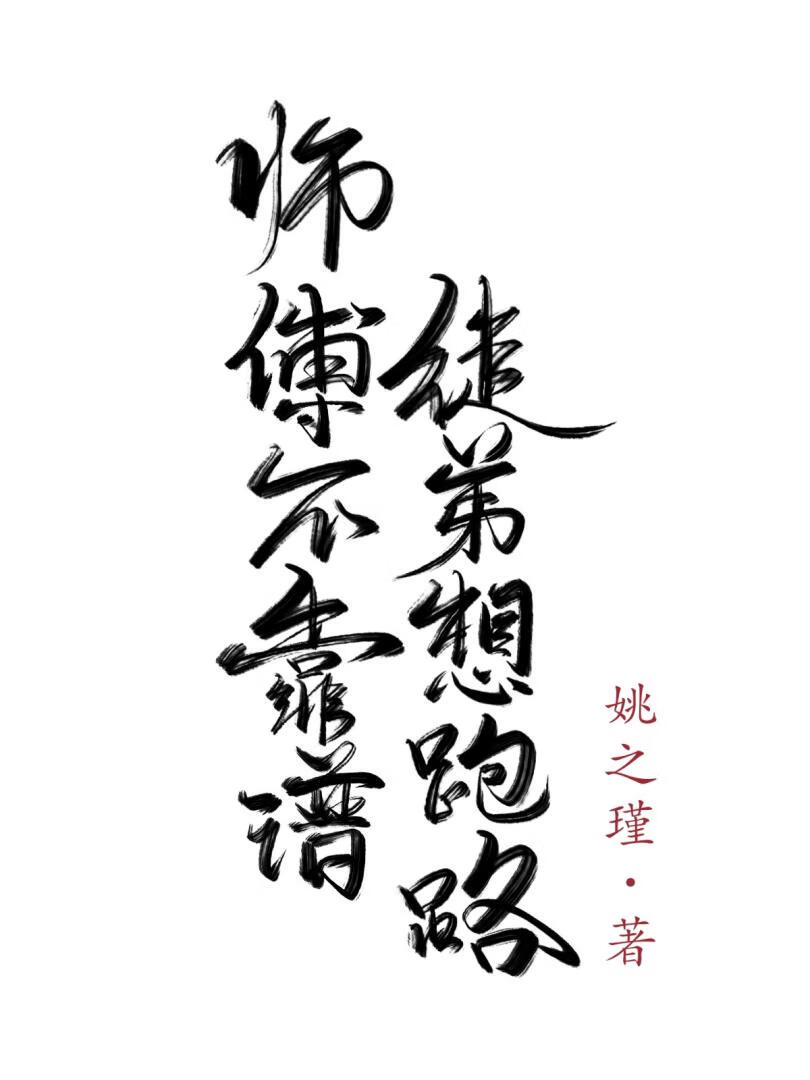 师傅不靠谱
徒弟想跑路
姚之瑾·著